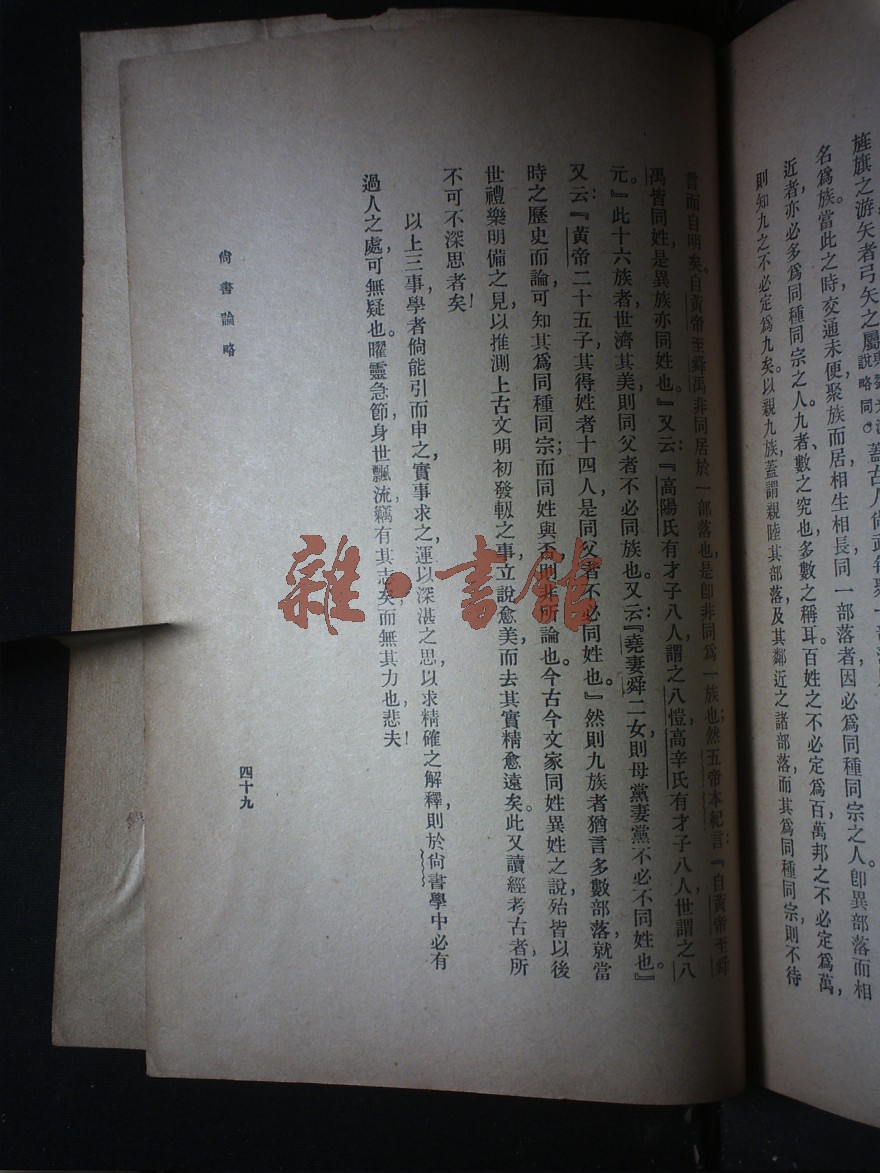 旌旗之游矢者弓矢之屬說略同。蓋古人尚武每聚一部落
名爲族。當此之時,交通未便,聚族而居,相生相長,同一部落者,因必爲同種同宗之人。卽異部落而相
近者,亦必多爲同種同宗之人。九者,數之究也,多數之稱耳。百姓之不必定爲百,萬邦之不必定爲萬,
則知九之不必定爲九矣。以親九族,蓋謂親陸其部落,及其鄰近之諸部落,而其爲同種同宗,則不待
言而自明矣。自黃帝至舜禹,非同居於一部落也,是卽非同爲一族也;然五帝本紀言:『自黃帝至舜
禹皆同姓,是異族亦同姓也。』又云:『高陽氏有才子八人,謂之八愷,高辛氏有才子八人,世謂之八
元。』此十六族者,世濟其美,則同父者不必同族也。又云:『堯妻舜二女,則母黨妻黨不必不同姓也』。
又云:『黃帝二十五子,其得姓者十四人,是同父者不必同姓也。』然則九族者,猶言多數部落,就當
時之歷史而論,可知其爲同種同宗;而同姓與否,則非所論也。今古今文家同姓異姓之說,殆皆以後
世禮樂明備之見,以推測上古文明初發軔之事,立說愈美,而去其實精愈遠矣。此又讀經考古者所
不可不深思者矣!
以上三事,學者倘能引而申之,實事求之,運以深湛之思,以求精確之解釋,則於尚書學中,必有
過人之處,可無疑也。曜靈急節,身世飄流,竊有其志矣,而無其力也,悲夫!
尚書論略
四十九
雜·書館